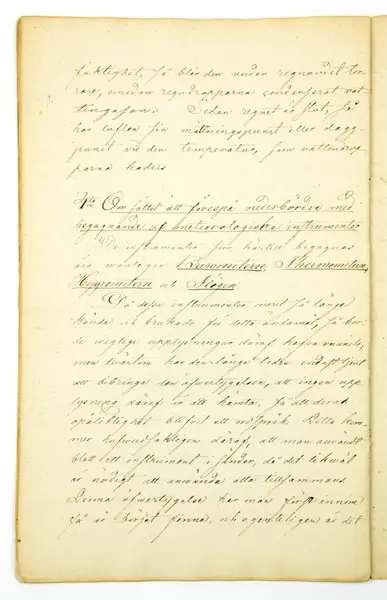 fuktighet, så blir den under regnandet tor-
rare, emedan regndropparna condenserat vat-
tengasen. Sedan regnet är slut, så
har luften sin mättningspunkt eller dagg-
punkt vid den temperatur, som vattendrop-
parna hade.
4de Om sättet att förespå nederbörden med
begagnande af meteorologiska instrumenter
De instrumenter som härtill begagnas
äro vanligen Barometern, Thermometern,
Hygrometern och Flögen.
Då desse instrumenter varit så länge
kända och brukade för detta ändamål, så bor-
de vigtiga upplysningar däraf hafva vunnits,
men tvärtom har den långa tiden endast tjent
att bibringa den öfvertygelsen, att ingen upp-
lysning däraf är att hämta, så att deras
opålitlighet blifvit ett ordspråk. Detta kom-
mer hufvudsakligen däraf, att man användt
blott ett instrument i sänder, då det likväl
är nödigt att använda alla tillsammans
Denna öfvertygelse har man först innom
få år börjat finna, och egenteligen är det